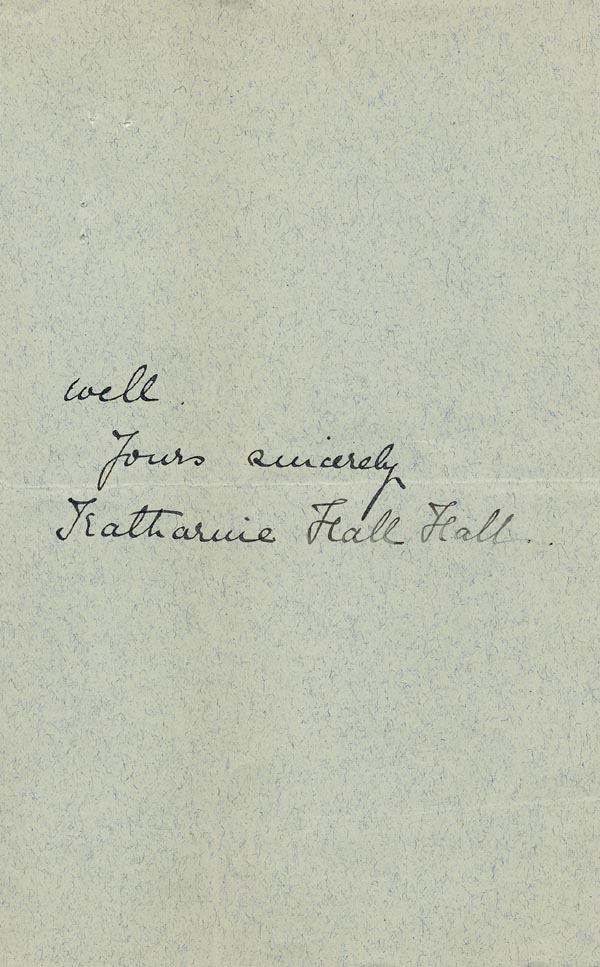 well.
Yours sincerely
Katharine Hall Hall.